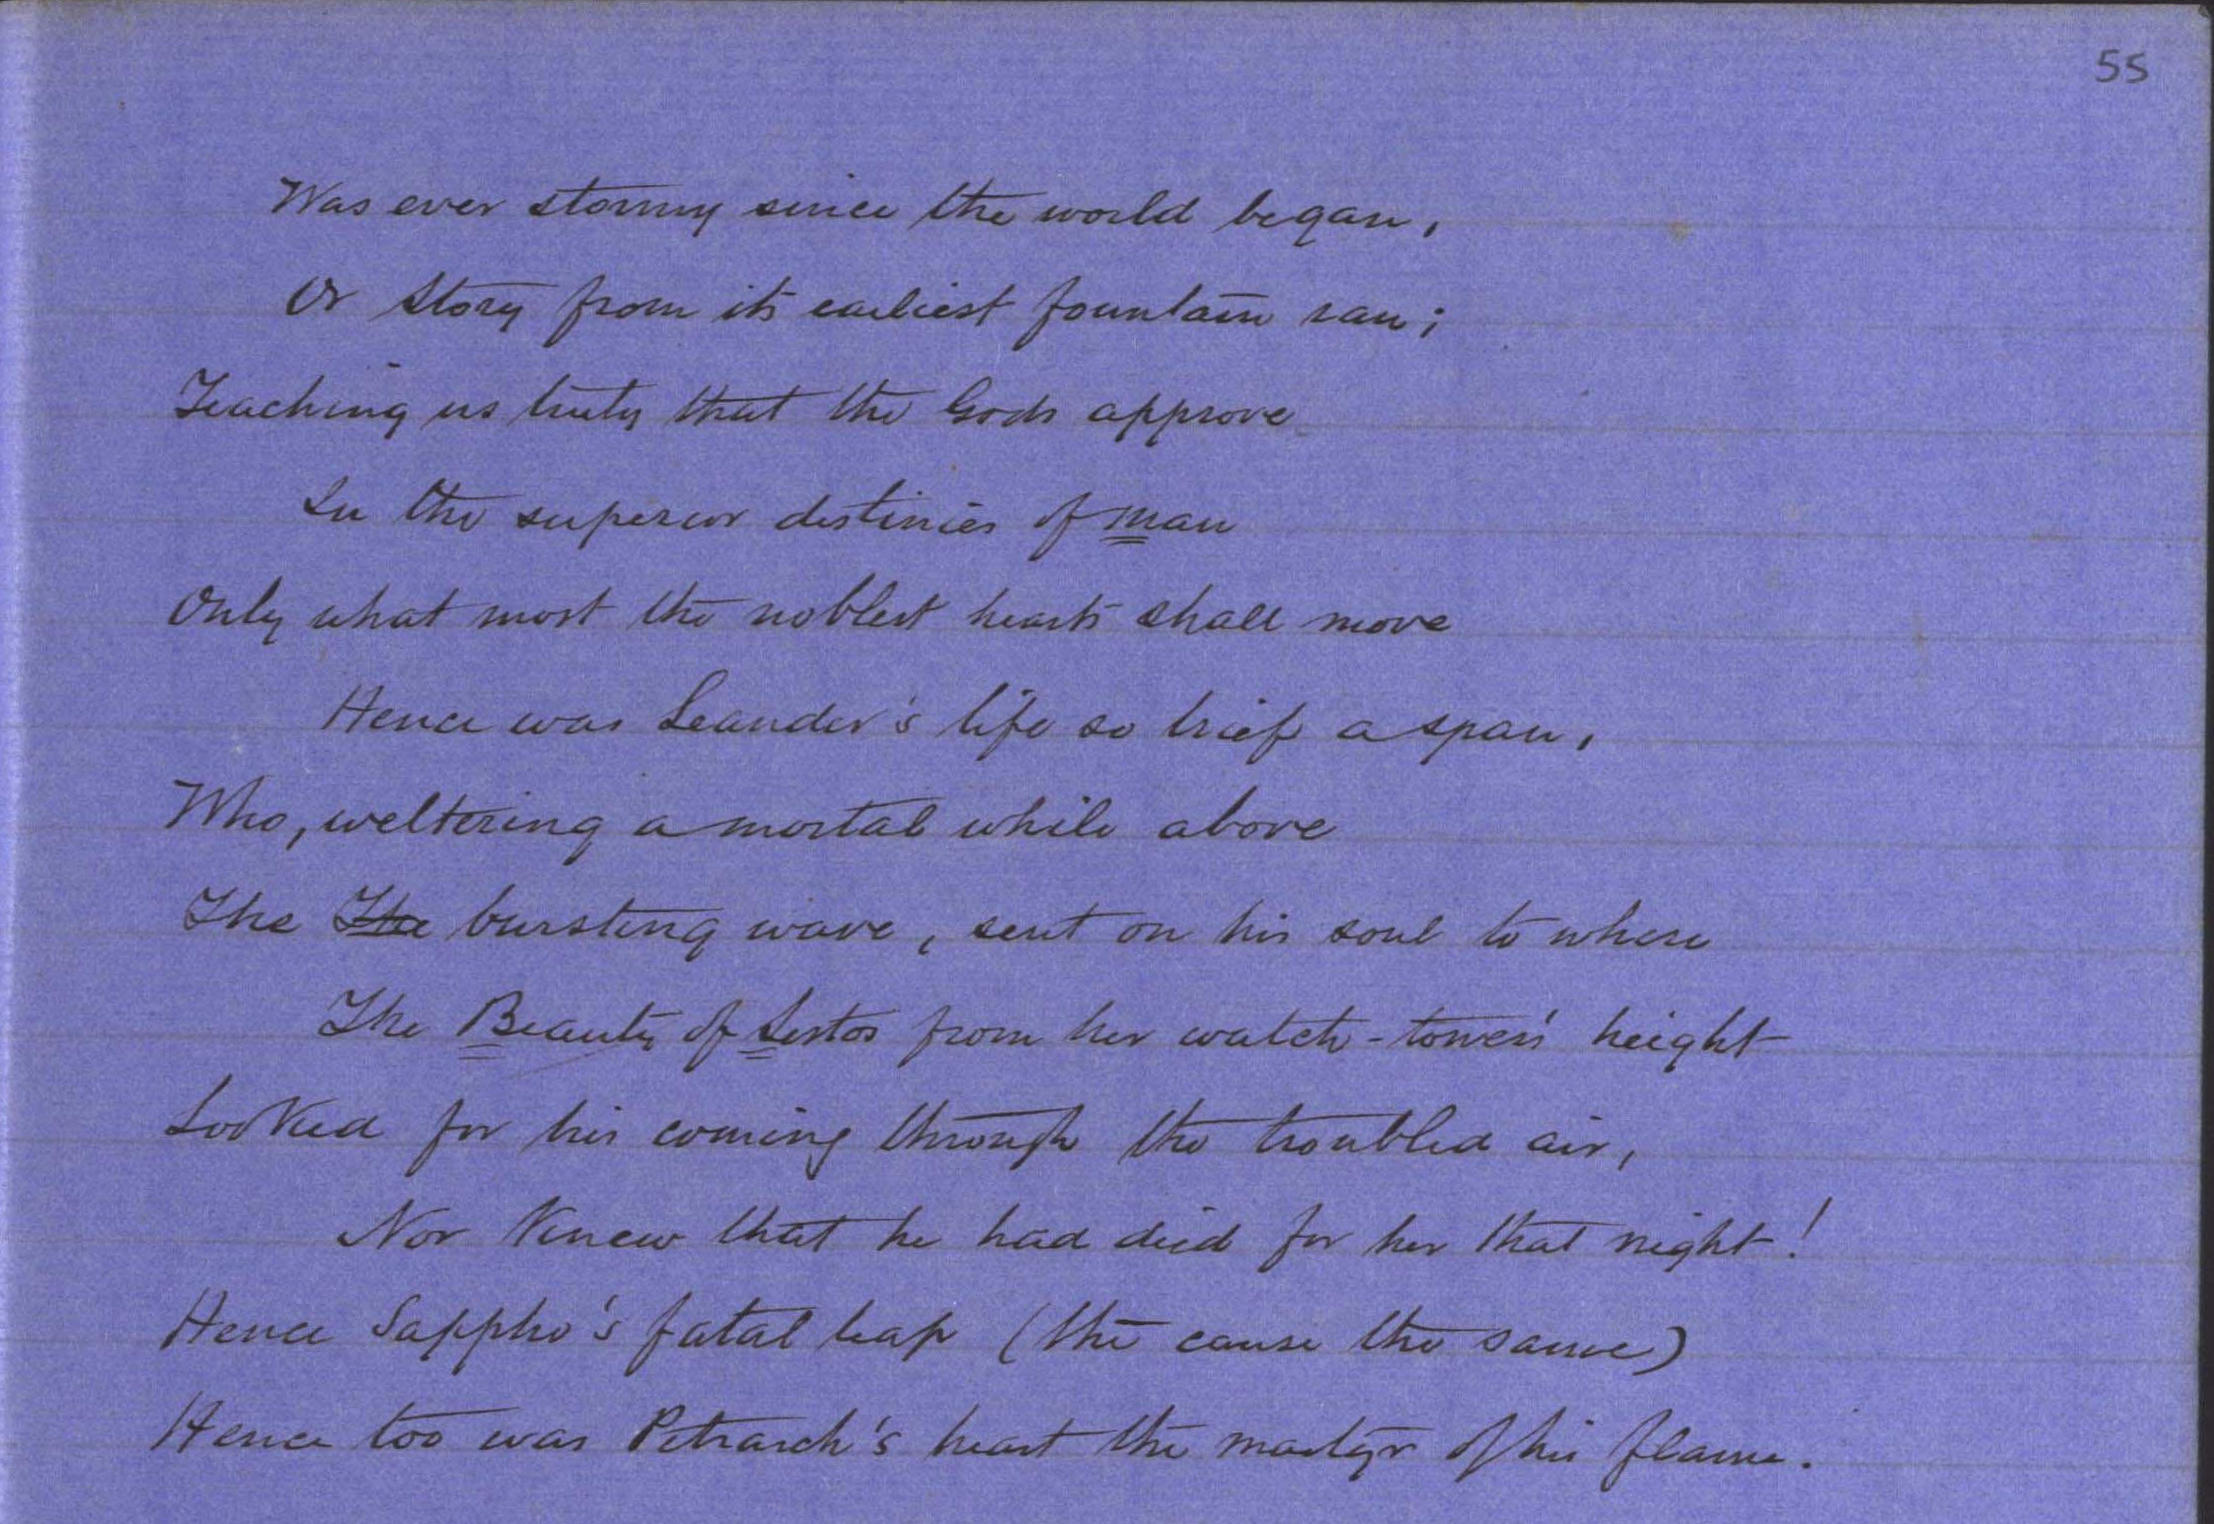 55
Was ever stormy since the world began,
Or story from its earliest fountain ran;
Teaching us truly that the Gods approve
In the superior destinies of man
Only what most the noblest hearts shall move
Hence was Leander's life so brief a span,
Who, weltering a mortal while above
The The bursting wave, sent on his soul to where
The Beauty of Sestos from her watch-tower's height
Looked for his coming through the troubled air,
Nor knew that he had died for her that night!
Hence Sappho's fatal leap (the cause the same)
Hence too was Petrarch's heart the martyr of his flame.